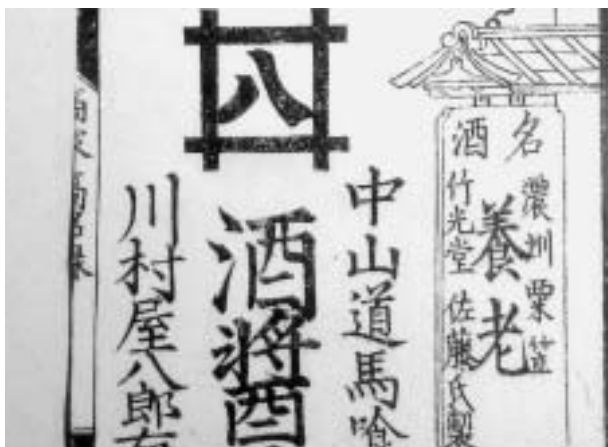 名酒
濃州栗笠
養老
竹光堂 佐藤氏製
中山道馬喰
八
酒醬
川村屋八郎